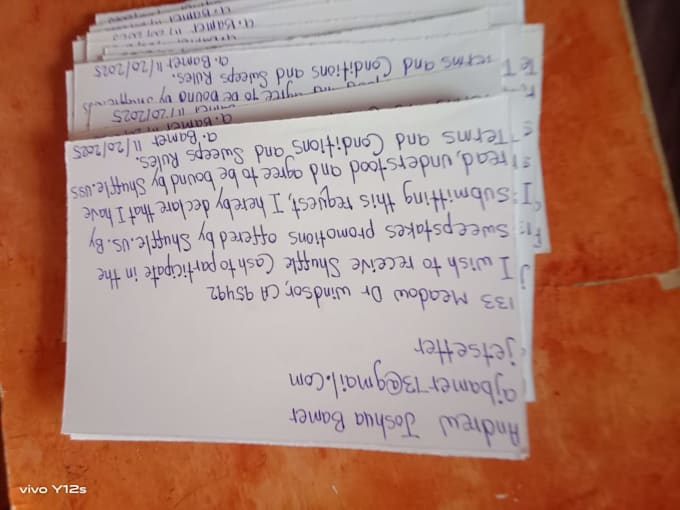 Andrew Joshua Bamer
ajbamer73@gmail.com
jetsetter
133 Meadow Dr Windsor, CA 95492
I wish to receive Shuffle Cash to participate in the
sweepstakes promotions offered by Shuffle.us. By
submitting this request, I hereby declare that I have
read, understood and agree to be bound by Shuffle.us's
Terms and Conditions and Sweeps Rules.
a. Bamer 11/20/2025
a. Bamer 11/20/2025
agree to be bound by
Terms and Conditions and Sweeps Rules.
a. Bamer 11/20/2025
a. Bamer
vivo Y12s